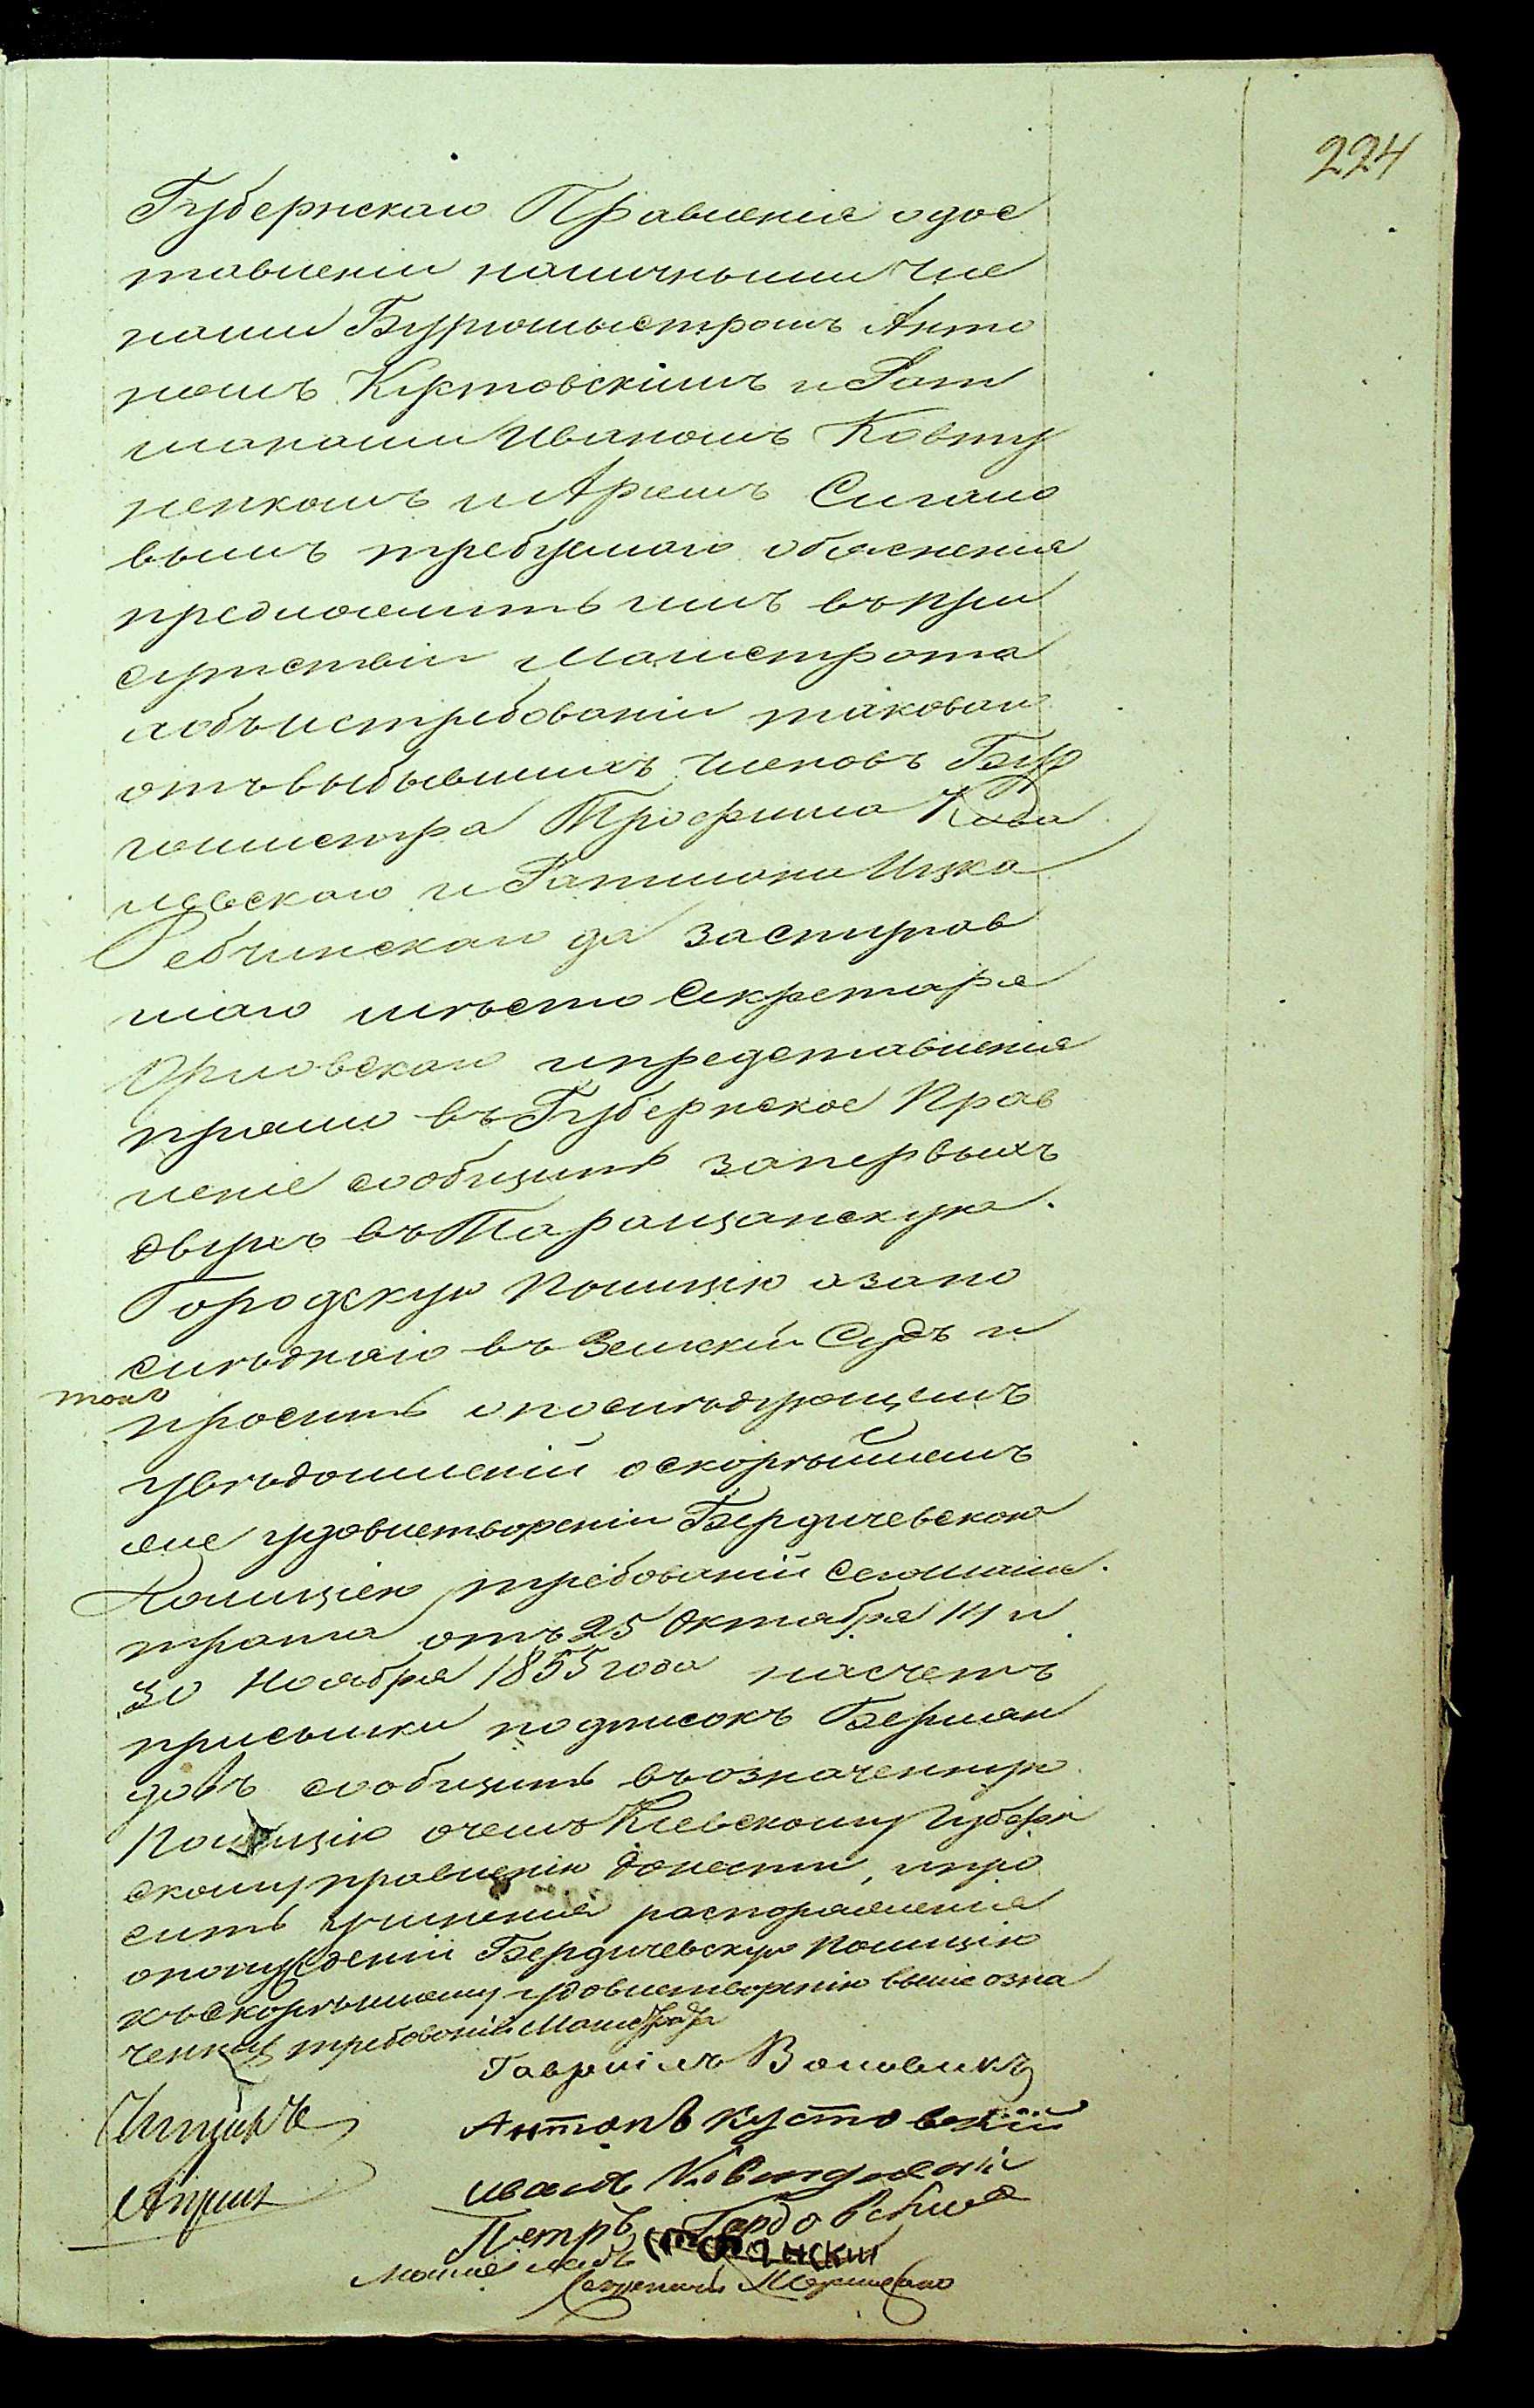 224
Губернскаго Правленія о дос
тавленіи наличными Чле
нами Бургомыстромъ Анто
номъ Кустовскимъ и Рат
манами Иваномъ Ковту
ненкомъ и Арономъ Сигало
вымъ требуемаго обясненія
предложить имъ въ при
сутствіи Магистрата
а объ истребованіи таковаго
отъ выбывшихъ Членовъ Бур
гомистра Трофима Кова
левскаго и Ратмана Ицка
Ребчинскаго да заступав
шаго мѣсто Секретаря
Орловскаго и представленія
прямо въ Губернское Прав
леніе сообщить за первыхъ
двухъ въ Таращанскую
Городскую Полицію а за по
слѣдняго въ Земскій Судъ и
того
просить о послѣдующемъ
увѣдомленій о скорѣйшемъ
же удовлетвореніи Бердичевскою
Полиціею требованій сего Магис
трата отъ 25 Октября 14 и
30 Ноября 1855 года насчетъ
присылки подписокъ Берман
довъ сообщить въ означенную
Полицію о чемъ Кіевскому Губерн
скому правленію донести, и про
сить учиненія распоряженія
о понужденіи Бердичевскую Полицію
къ скорѣйшему удовлетворенію выше озна
ченныхъ требованій Магистрата
Гавріилъ Воловикъ
Антонъ Кустовскій
иванъ Ковтуненко
Петръ Гордовскій